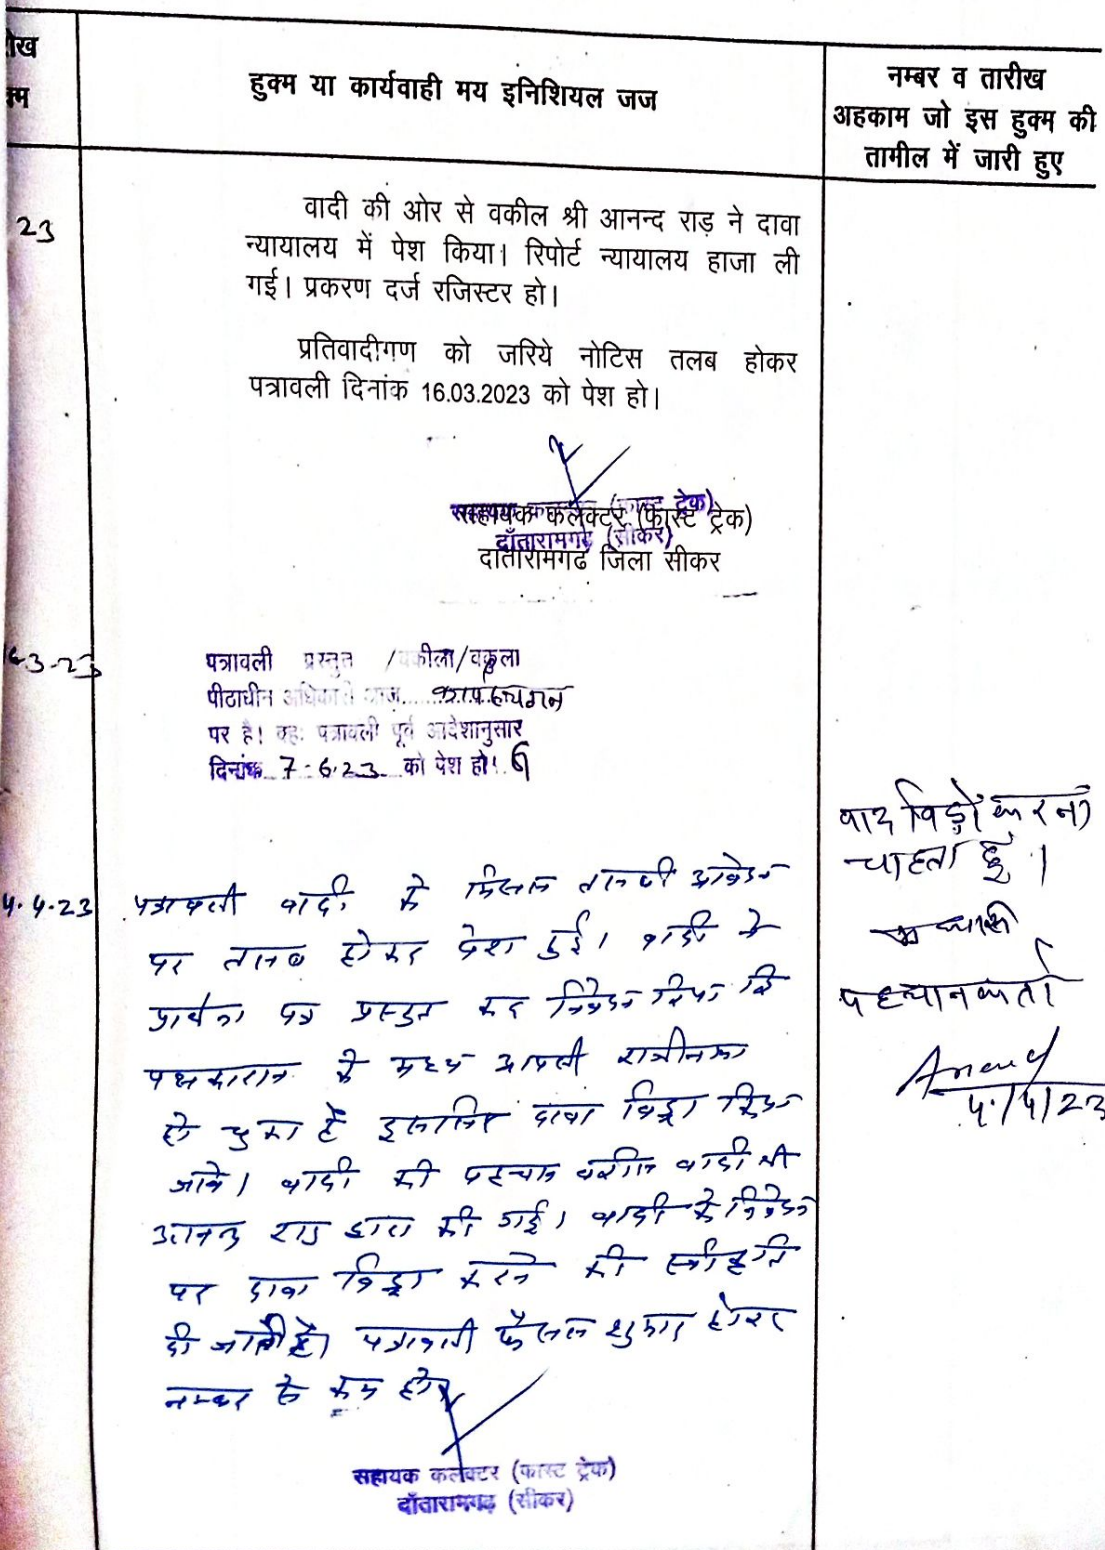 हुक्म या कार्यवाही मय इनिशियल जज
नम्बर व तारीख
अहकाम जो इस हुक्म की
तामील में जारी हुए
23
वादी की ओर से वकील श्री आनन्द राड़ ने दावा
न्यायालय में पेश किया। रिपोर्ट न्यायालय हाजा ली
गई। प्रकरण दर्ज रजिस्टर हो।
प्रतिवादीगण को जरिये नोटिस तलब होकर
पत्रावली दिनांक 16.03.2023 को पेश हो।
सहायक कलेक्टर (फास्ट ट्रेक)
दाँतारामगढ (सीकर)
सहायक कलेक्टर (फास्ट ट्रेक)
दांतारामगढ जिला सीकर
3-23
पत्रावली प्रस्तुत /वकील/वकुला
पीठाधीन अधिकारी
पर है। वह पत्रावली पूर्व आदेशानुसार
दिनांक 7-6-23 को पेश हो।
4.4.23
पत्रावली वादी के मिसल तलबी आवेदन
पर तलब होकर पेश हुई। वादी ने
प्रार्थना पत्र प्रस्तुत कर निवेदन किया कि
पक्षकारान के मध्य आपसी राजीनामा
हो चुका है इसलिए दावा विड्रा किया
जावे। वादी की पहचान वकील वादी श्री
आनन्द राड द्वारा की गई। वादी के निवेदन
पर दावा विड्रा करने की स्वीकृति
दी जाती है। पत्रावली फैसल शुमार होकर
नम्बर से कम हो।
सहायक कलेक्टर (फास्ट ट्रेक)
दाँतारामगढ़ (सीकर)
वाद विड्रो करना
चाहता हूँ।
पहचानकर्ता
Anand
4/4/23